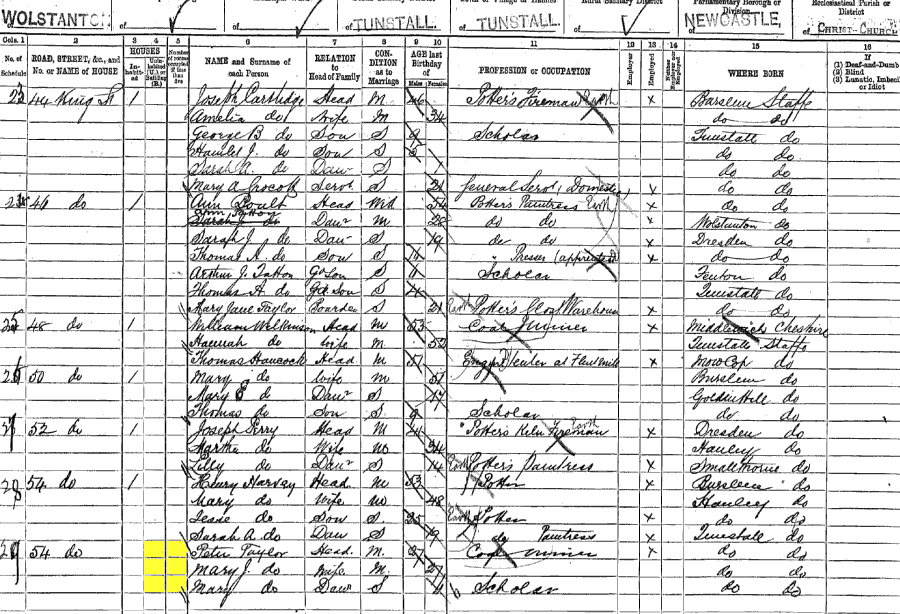 WOLSTANTON TUNSTALL TUNSTALL NEWCASTLE CHRIST-CHURCH
Parliamentary Borough or Division Ecclesiastical Parish or District
Cols. 1 2 3 4 5 6 7 8 9 10 11 12 13 14 15 16
No. of Schedule ROAD, STREET, &c., and No. or NAME of HOUSE HOUSES In-habited Uninhabited (U.) or Building (B.) Number of rooms occupied if less than five NAME and Surname of each Person RELATION to Head of Family CONDITION as to Marriage AGE last Birthday of Males Females PROFESSION or OCCUPATION Employer Employed WHERE BORN If (1) Deaf-and-Dumb (2) Blind (3) Lunatic, Imbecile or Idiot
23 44 King St 1 Joseph Cartlidge Head M 46 Potter's Fireman Earth X Burslem Staffs
Amelia do Wife M 34 do do
George B. do Son S 9 Scholar Tunstall do
Hamlet J. do Son S do do
Sarah A. do Daur S 1 do do
Mary A Servt S 21 General Servt Domestic X do do
24 46 do 1 Ann Boult Head Wd 54 Potter's Paintress Earth X do do
Daur M 28 do do X Wolstanton do
Sarah J. do Daur S 19 do do X Dresden do
Thomas A. do Son S 14 " Presser (apprentice) X do do
Arthur J. Tatton Gd Son S 11 Scholar Fenton do
Thomas A do Gd Son S Tunstall do
Mary Jane Taylor Boarder S 21 Earth Potter's Glost Warehouse X do do
25 48 do 1 William Wilkinson Head M 53 Coal Miner X Middlewich Cheshire
Hannah do Wife M 52 Tunstall Staffs
Thomas Hancock Head M 57 Engine Tenter at Flint mill X Mow Cop do
26 50 do 1 Mary do Wife M 51 Burslem do
Mary E do Daur S 17 Golden Hill do
Thomas do Son S 9 Scholar do do
27 52 do 1 Joseph Perry Head M Potter's Kiln Fireman Earth X Dresden do
Martha do Wife M 34 Hanley do
Lilly do Daur S 14 Earth Potter's Paintress X Smallthorne do
28 54 do 1 Henry Harvey Head M 53 Potter X Burslem do
Mary do Wife M 48 Hanley do
Jesse do Son S 25 Earth Potter X do do
Sarah A. do Daur S 19 do Paintress Tunstall do
29 54 do Peter Taylor Head M 27 Coal Miner X do do
Mary J. do Wife M 27 do do
Mary do Daur S Scholar do do